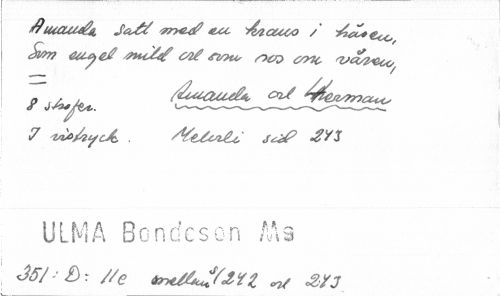 Amanda satt med en krans i håren,
Som engel mild och som ros om våren,
=
8 strofer. Amanda och Herman
I vistryck. sid 243
ULMA Bondeson Ms
351: D: 11c mellan s/242 och 243.